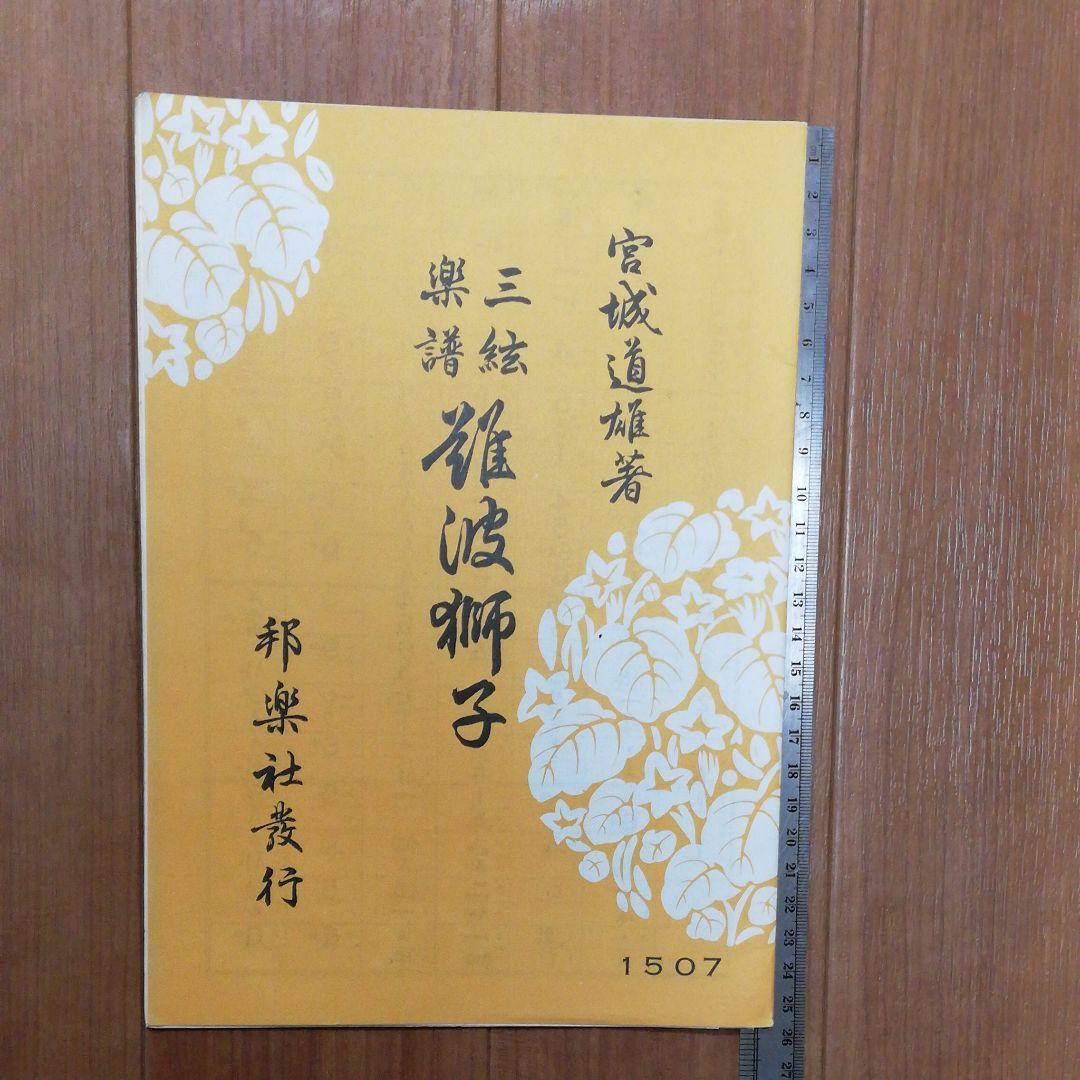 宮城道雄著
三絃
樂譜
難波獅子
邦樂社發行
1507
1
2
3
4
5
6
7
8
9
10
11
12
13
14
15
16
17
18
19
20
21
22
23
24
25
26
27